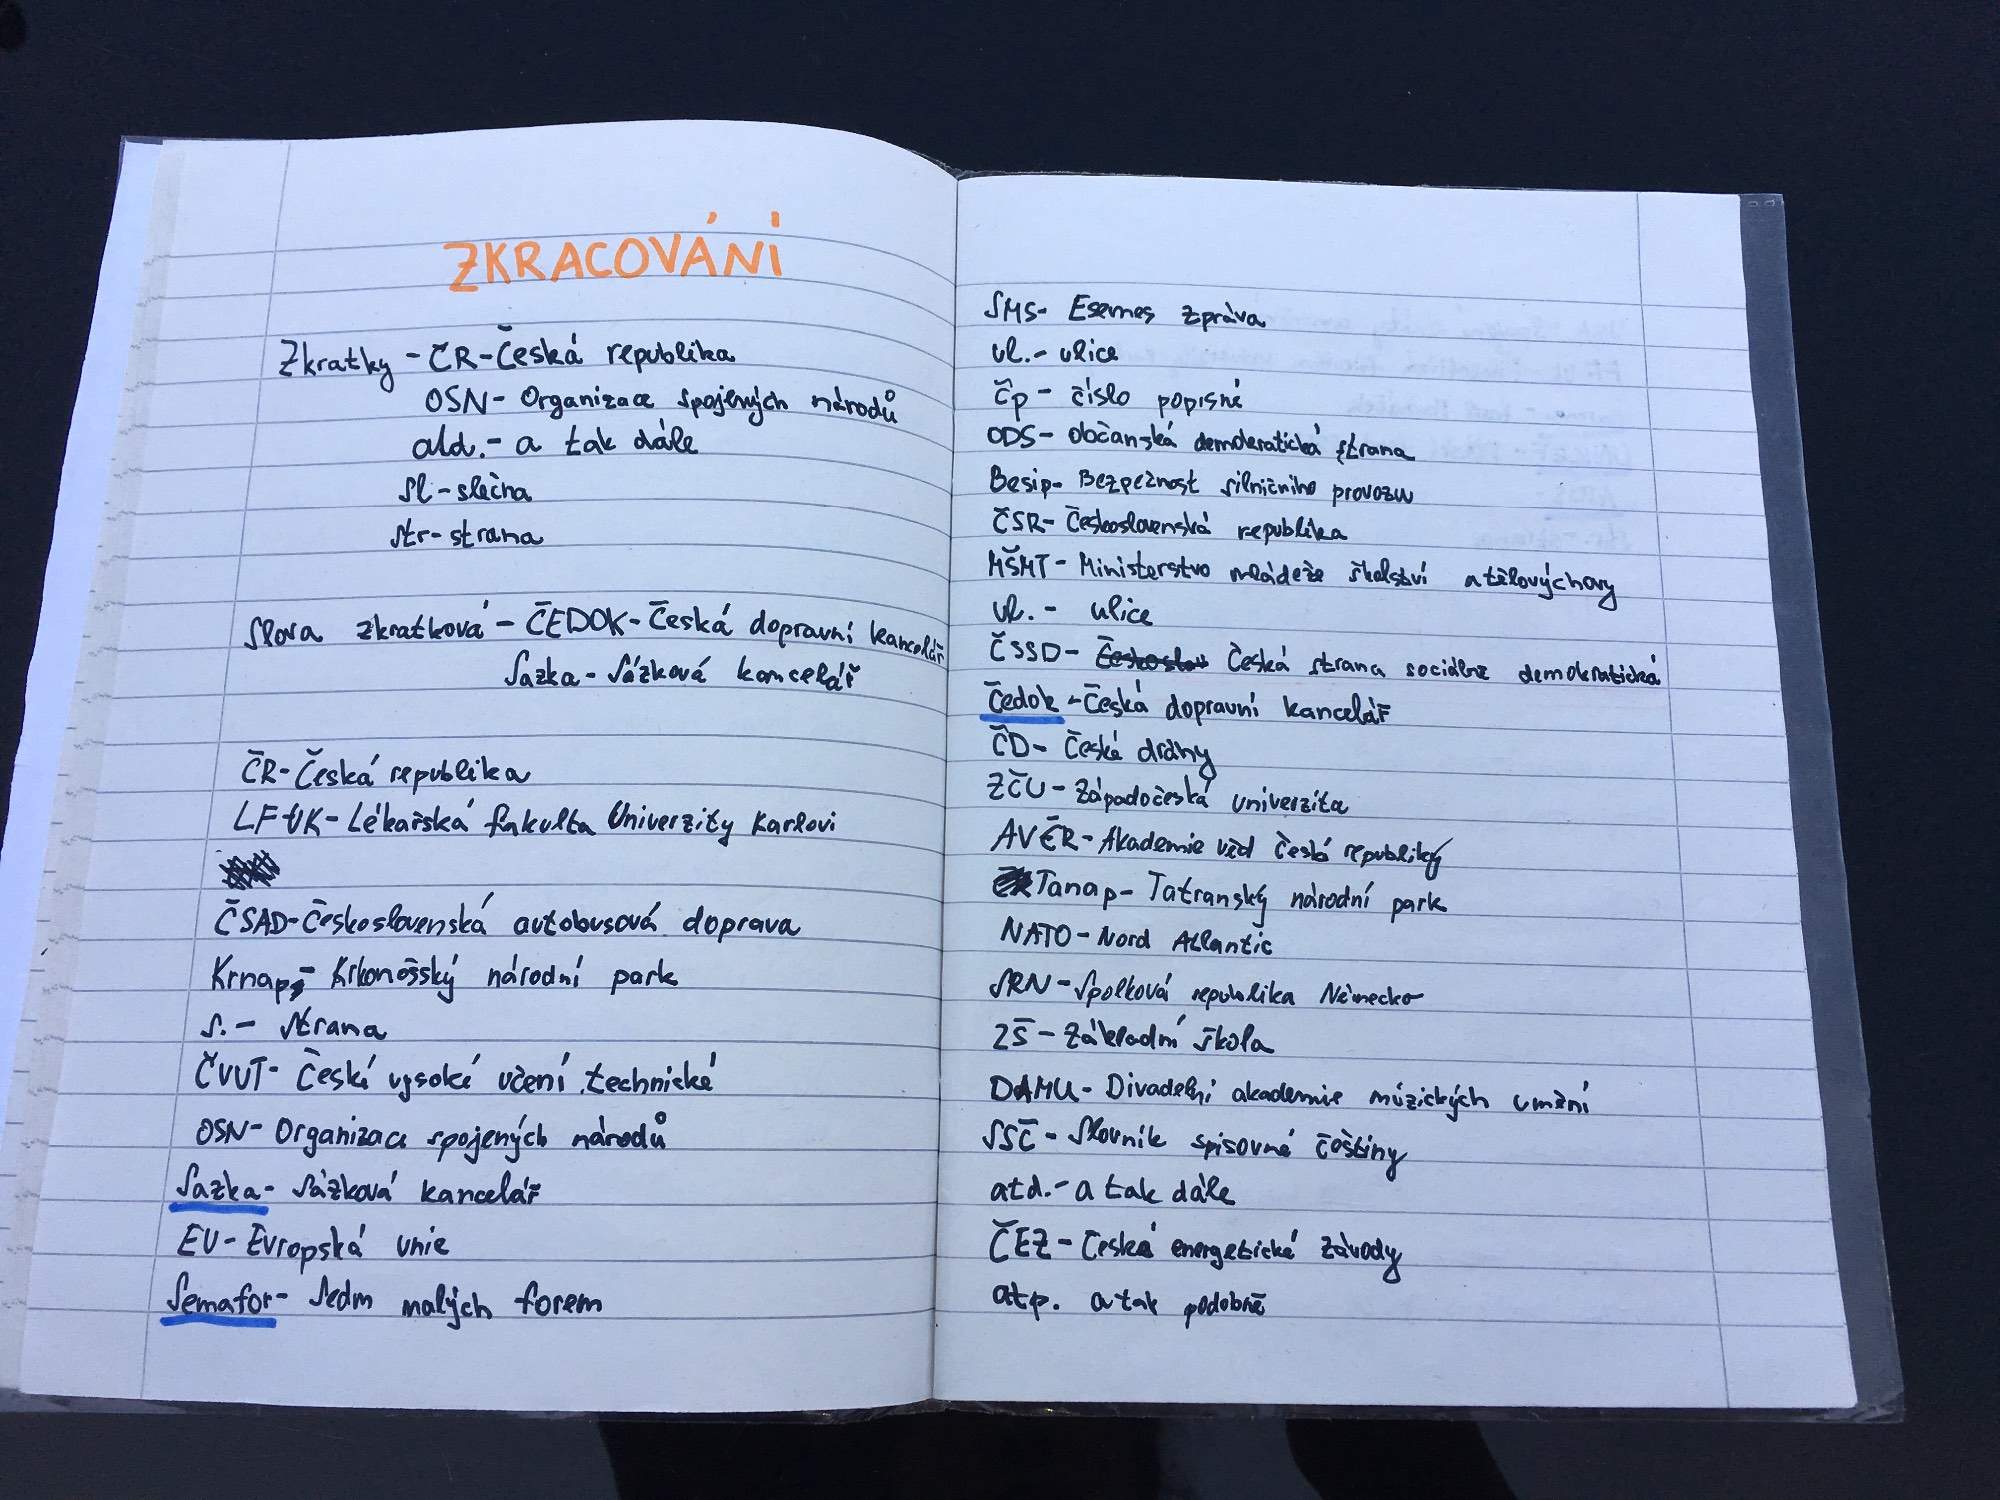 ZKRACOVÁNÍ
Zkratky - ČR - Česká republika
OSN - Organizace spojených národů
atd. - a tak dále
sl - slečna
str - strana
Slova zkratková - ČEDOK - Česká dopravní kancelář
Sazka - Sázková kancelář
ČR - Česká republika
LF UK - Lékařská fakulta Univerzity Karlovi
ČSAD - Československá autobusová doprava
Krnap - Krkonošský národní park
s. - strana
ČVUT - České vysoké učení technické
OSN - Organizace spojených národů
Sazka - Sázková kancelář
EU - Evropská unie
Semafor - Sedm malých forem
SMS - Esemes zpráva
ul. - ulice
čp - číslo popisné
ODS - občanská demokratická strana
Besip - Bezpečnost silničního provozu
ČSR - Československá republika
MŠMT - Ministerstvo mládeže školství a tělovýchovy
ul. - ulice
ČSSD - Českoslov Česká strana sociálně demokratická
Čedok - Česká dopravní kancelář
ČD - České dráhy
ZČU - Západočeská univerzita
AVČR - Akademie věd České republiky
Tanap - Tatranský národní park
NATO - Nord Atlantic
SRN - Spolková republika Německo
ZŠ - Základní škola
DAMU - Divadelní akademie múzických umění
SSČ - Slovník spisovné češtiny
atd. - a tak dále
ČEZ - České energetické závody
atp. a tak podobně